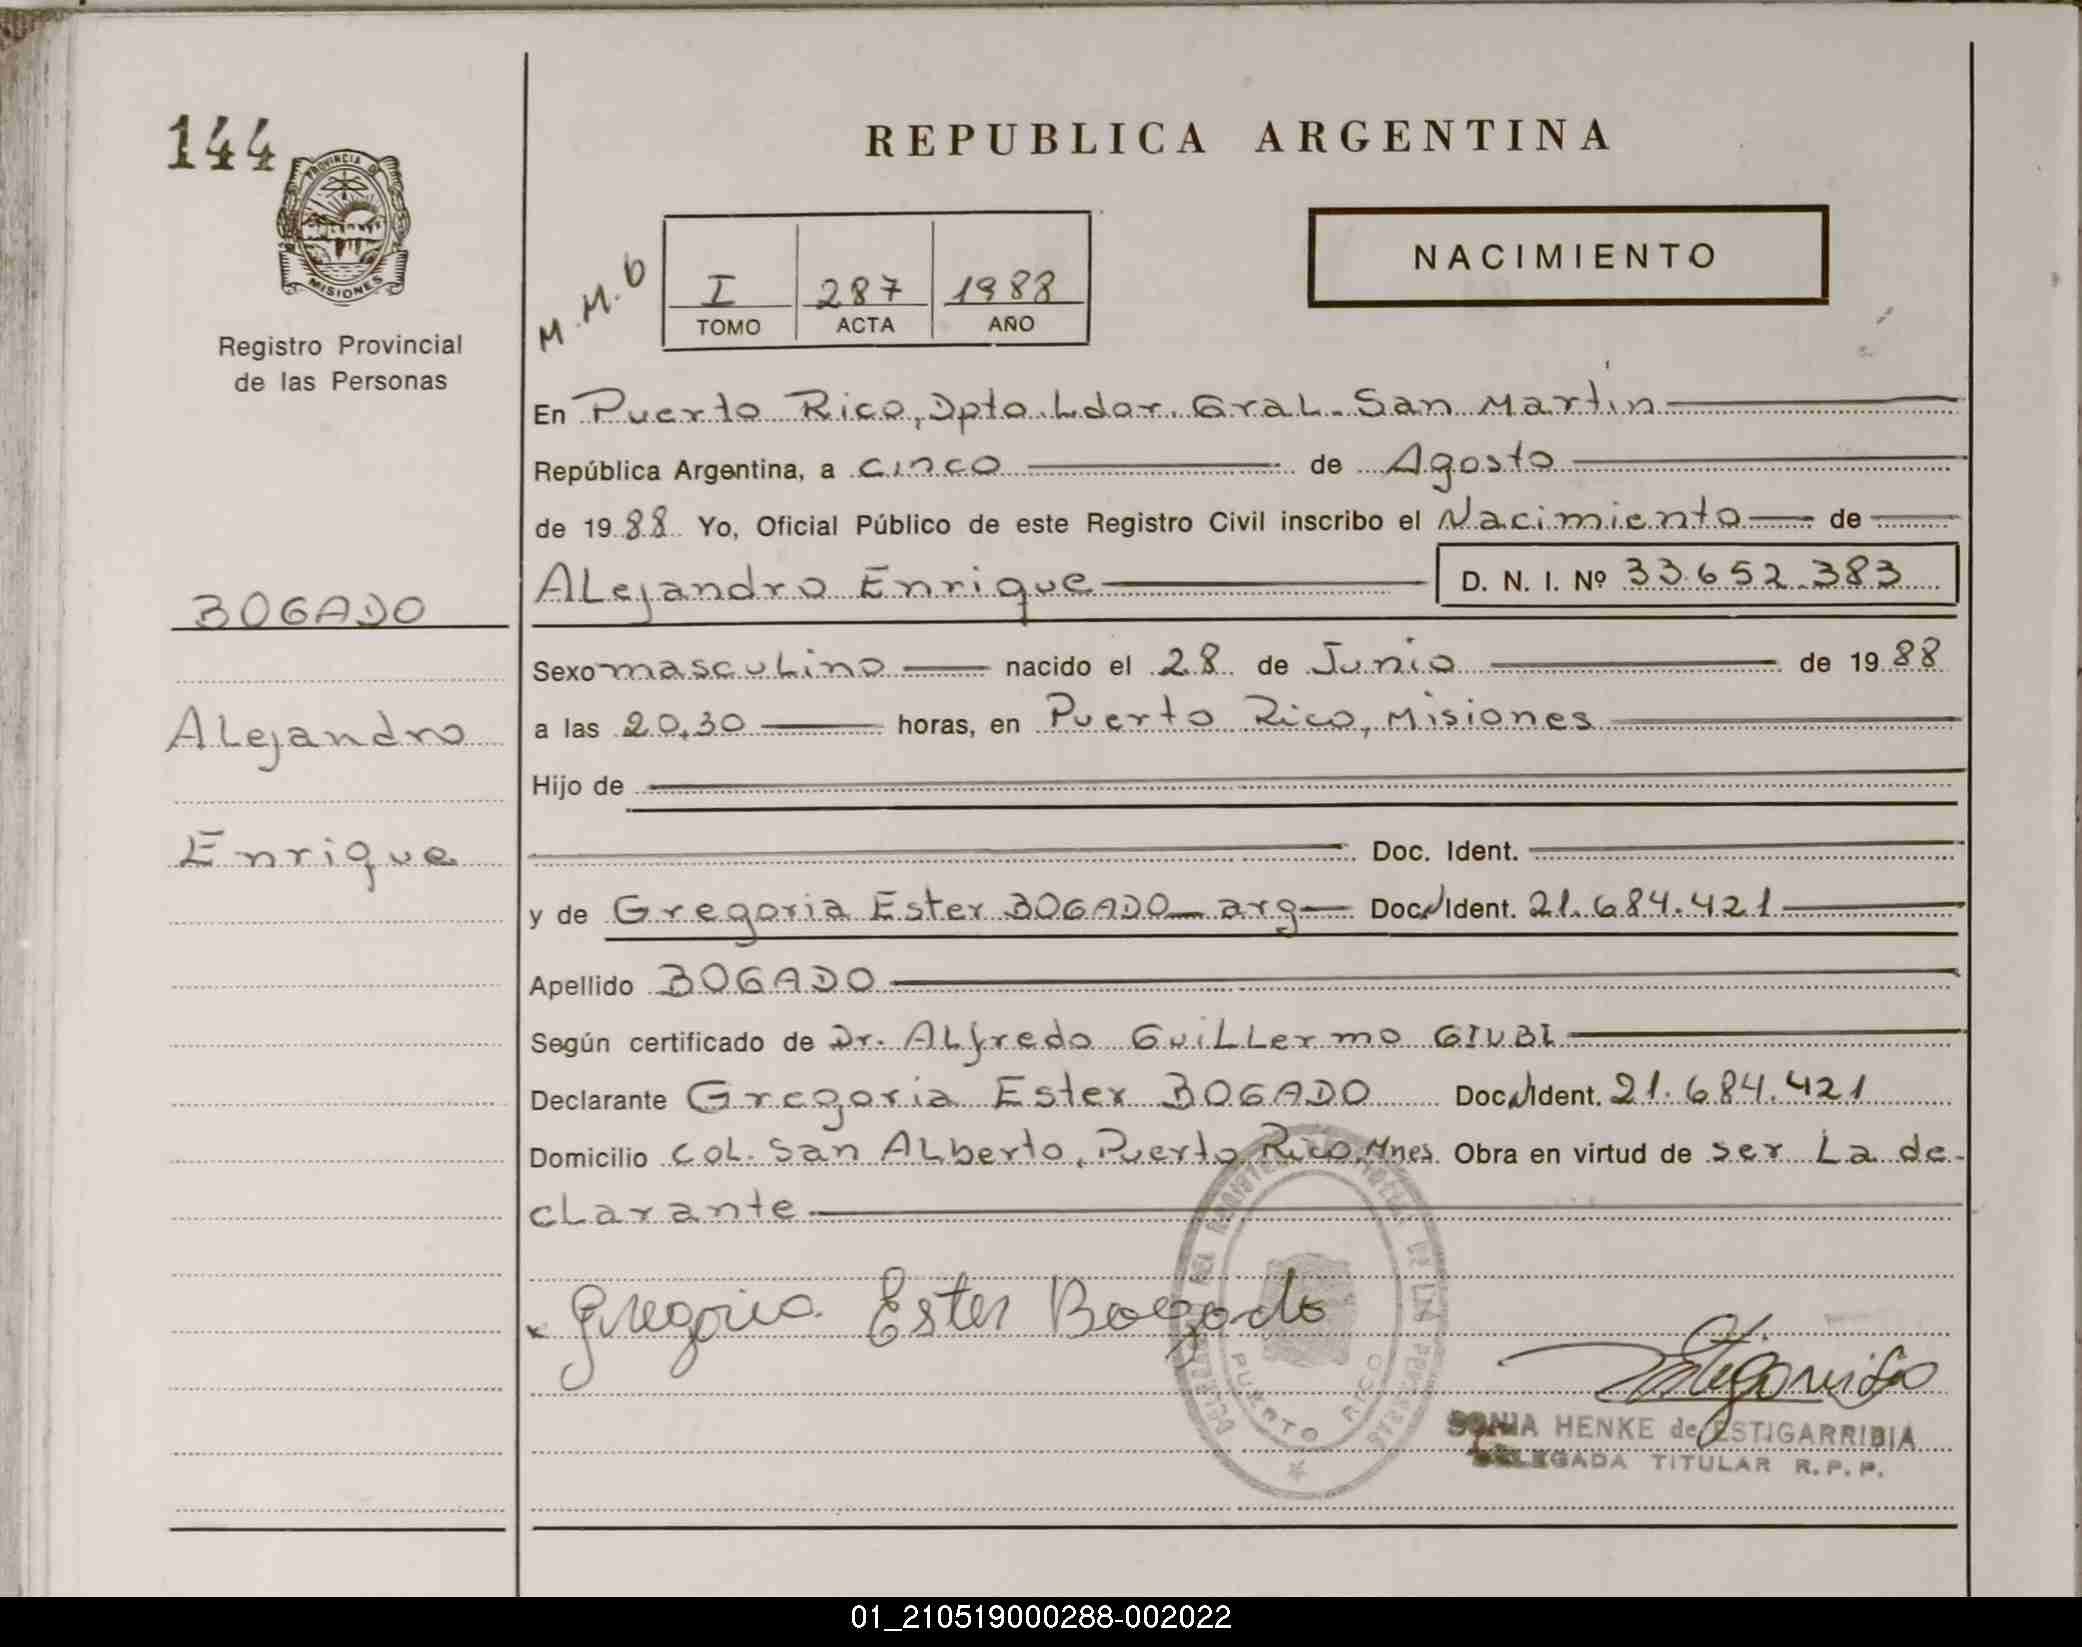 144
PROVINCIA DE
MISIONES
Registro Provincial
de las Personas
BOGADO
Alejandro
Enrique
REPUBLICA ARGENTINA
NACIMIENTO
M.M.b
I 287 1988
TOMO ACTA AÑO
En Puerto Rico, Dpto. Ldor. Gral. San Martín
República Argentina, a cinco de Agosto
de 1988 Yo, Oficial Público de este Registro Civil inscribo el Nacimiento de
Alejandro Enrique D. N. I. Nº 33.652.383
Sexo masculino nacido el 28 de Junio de 1988
a las 20,30 horas, en Puerto Rico, Misiones
Hijo de
Doc. Ident.
y de Gregoria Ester BOGADO - arg - Doc. Ident. 21.684.421
Apellido BOGADO
Según certificado de Dr. Alfredo Guillermo GIUBI
Declarante Gregoria Ester BOGADO Doc. Ident. 21.684.421
Domicilio Col. San Alberto, Puerto Rico, Mnes. Obra en virtud de ser la de-
clarante
Gregoria Ester Bogado
PUERTO RICO
Estigarribia
SONIA HENKE de ESTIGARRIBIA
DELEGADA TITULAR R. P. P.
01_210519000288-002022